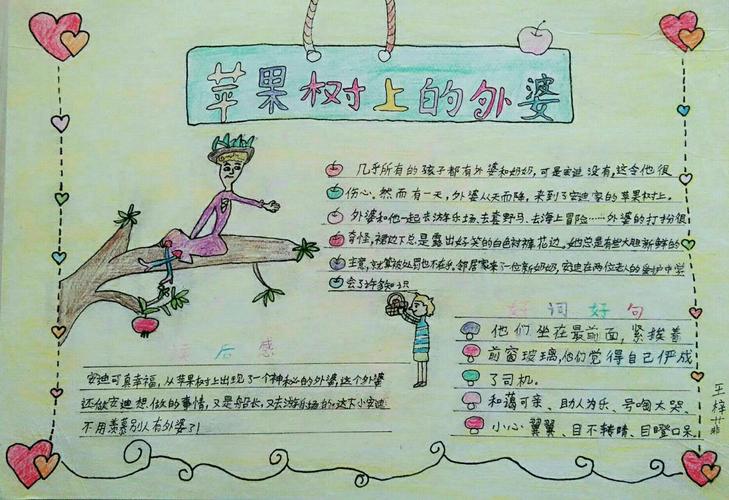 苹果树上的外婆
几乎所有的孩子都有外婆和奶奶,可是安迪没有,这令他很
伤心。然而有一天,外婆从天而降,来到了安迪家的苹果树上。
外婆和他一起去游乐场、去套野马、去海上冒险……外婆的打扮很
奇怪,裙边下总是露出好笑的白色衬裤花边。她总是有些大胆新鲜的
主意,就算被处罚也不在乎。邻居家来了一位新奶奶,安迪在两位老人的爱护中学
会了许多知识
读后感
安迪可真幸福,从苹果树上出现了一个神秘的外婆,这个外婆
还做安迪想做的事情,又是当船长,又去游乐场的,这下小安迪
不用羡慕别人有外婆了!
好词好句
他们坐在最前面,紧挨着
前窗玻璃,他们觉得自己俨成
了司机。
和蔼可亲、助人为乐、号啕大哭、
小心翼翼、目不转睛、目瞪口呆
王梓